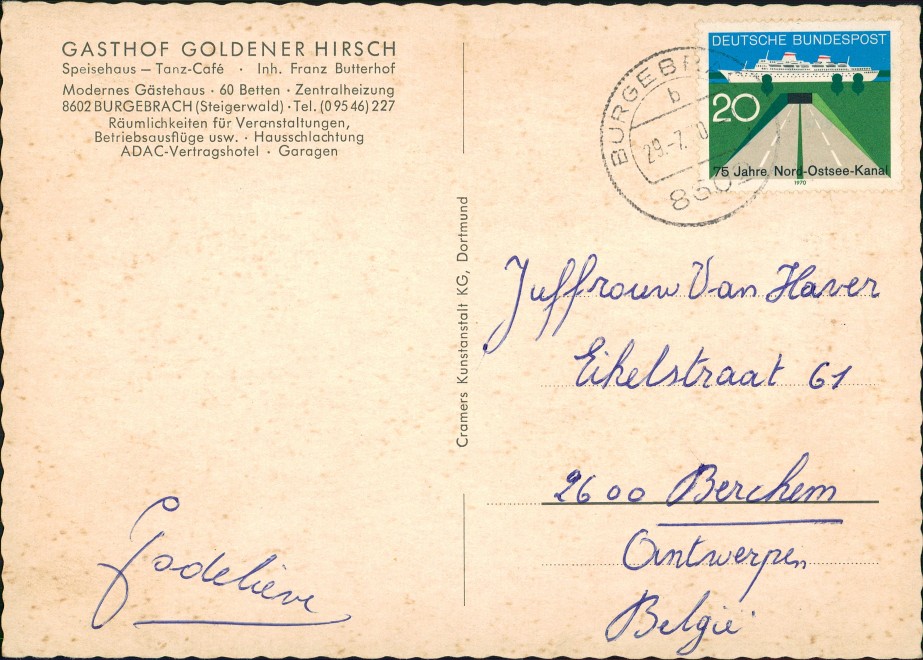 GASTHOF GOLDENER HIRSCH
Speisehaus – Tanz-Café · Inh. Franz Butterhof
Modernes Gästehaus · 60 Betten · Zentralheizung
8602 BURGEBRACH (Steigerwald) · Tel. (0 95 46) 227
Räumlichkeiten für Veranstaltungen,
Betriebsausflüge usw. · Hausschlachtung
ADAC-Vertragshotel · Garagen
Cramers Kunstanstalt KG, Dortmund
DEUTSCHE BUNDESPOST
20
75 Jahre Nord-Ostsee-Kanal
1970
b
29.-7.
Juffrouw Van Haver
Eikelstraat 61
2600 Berchem
Antwerpen
België
Godelieve